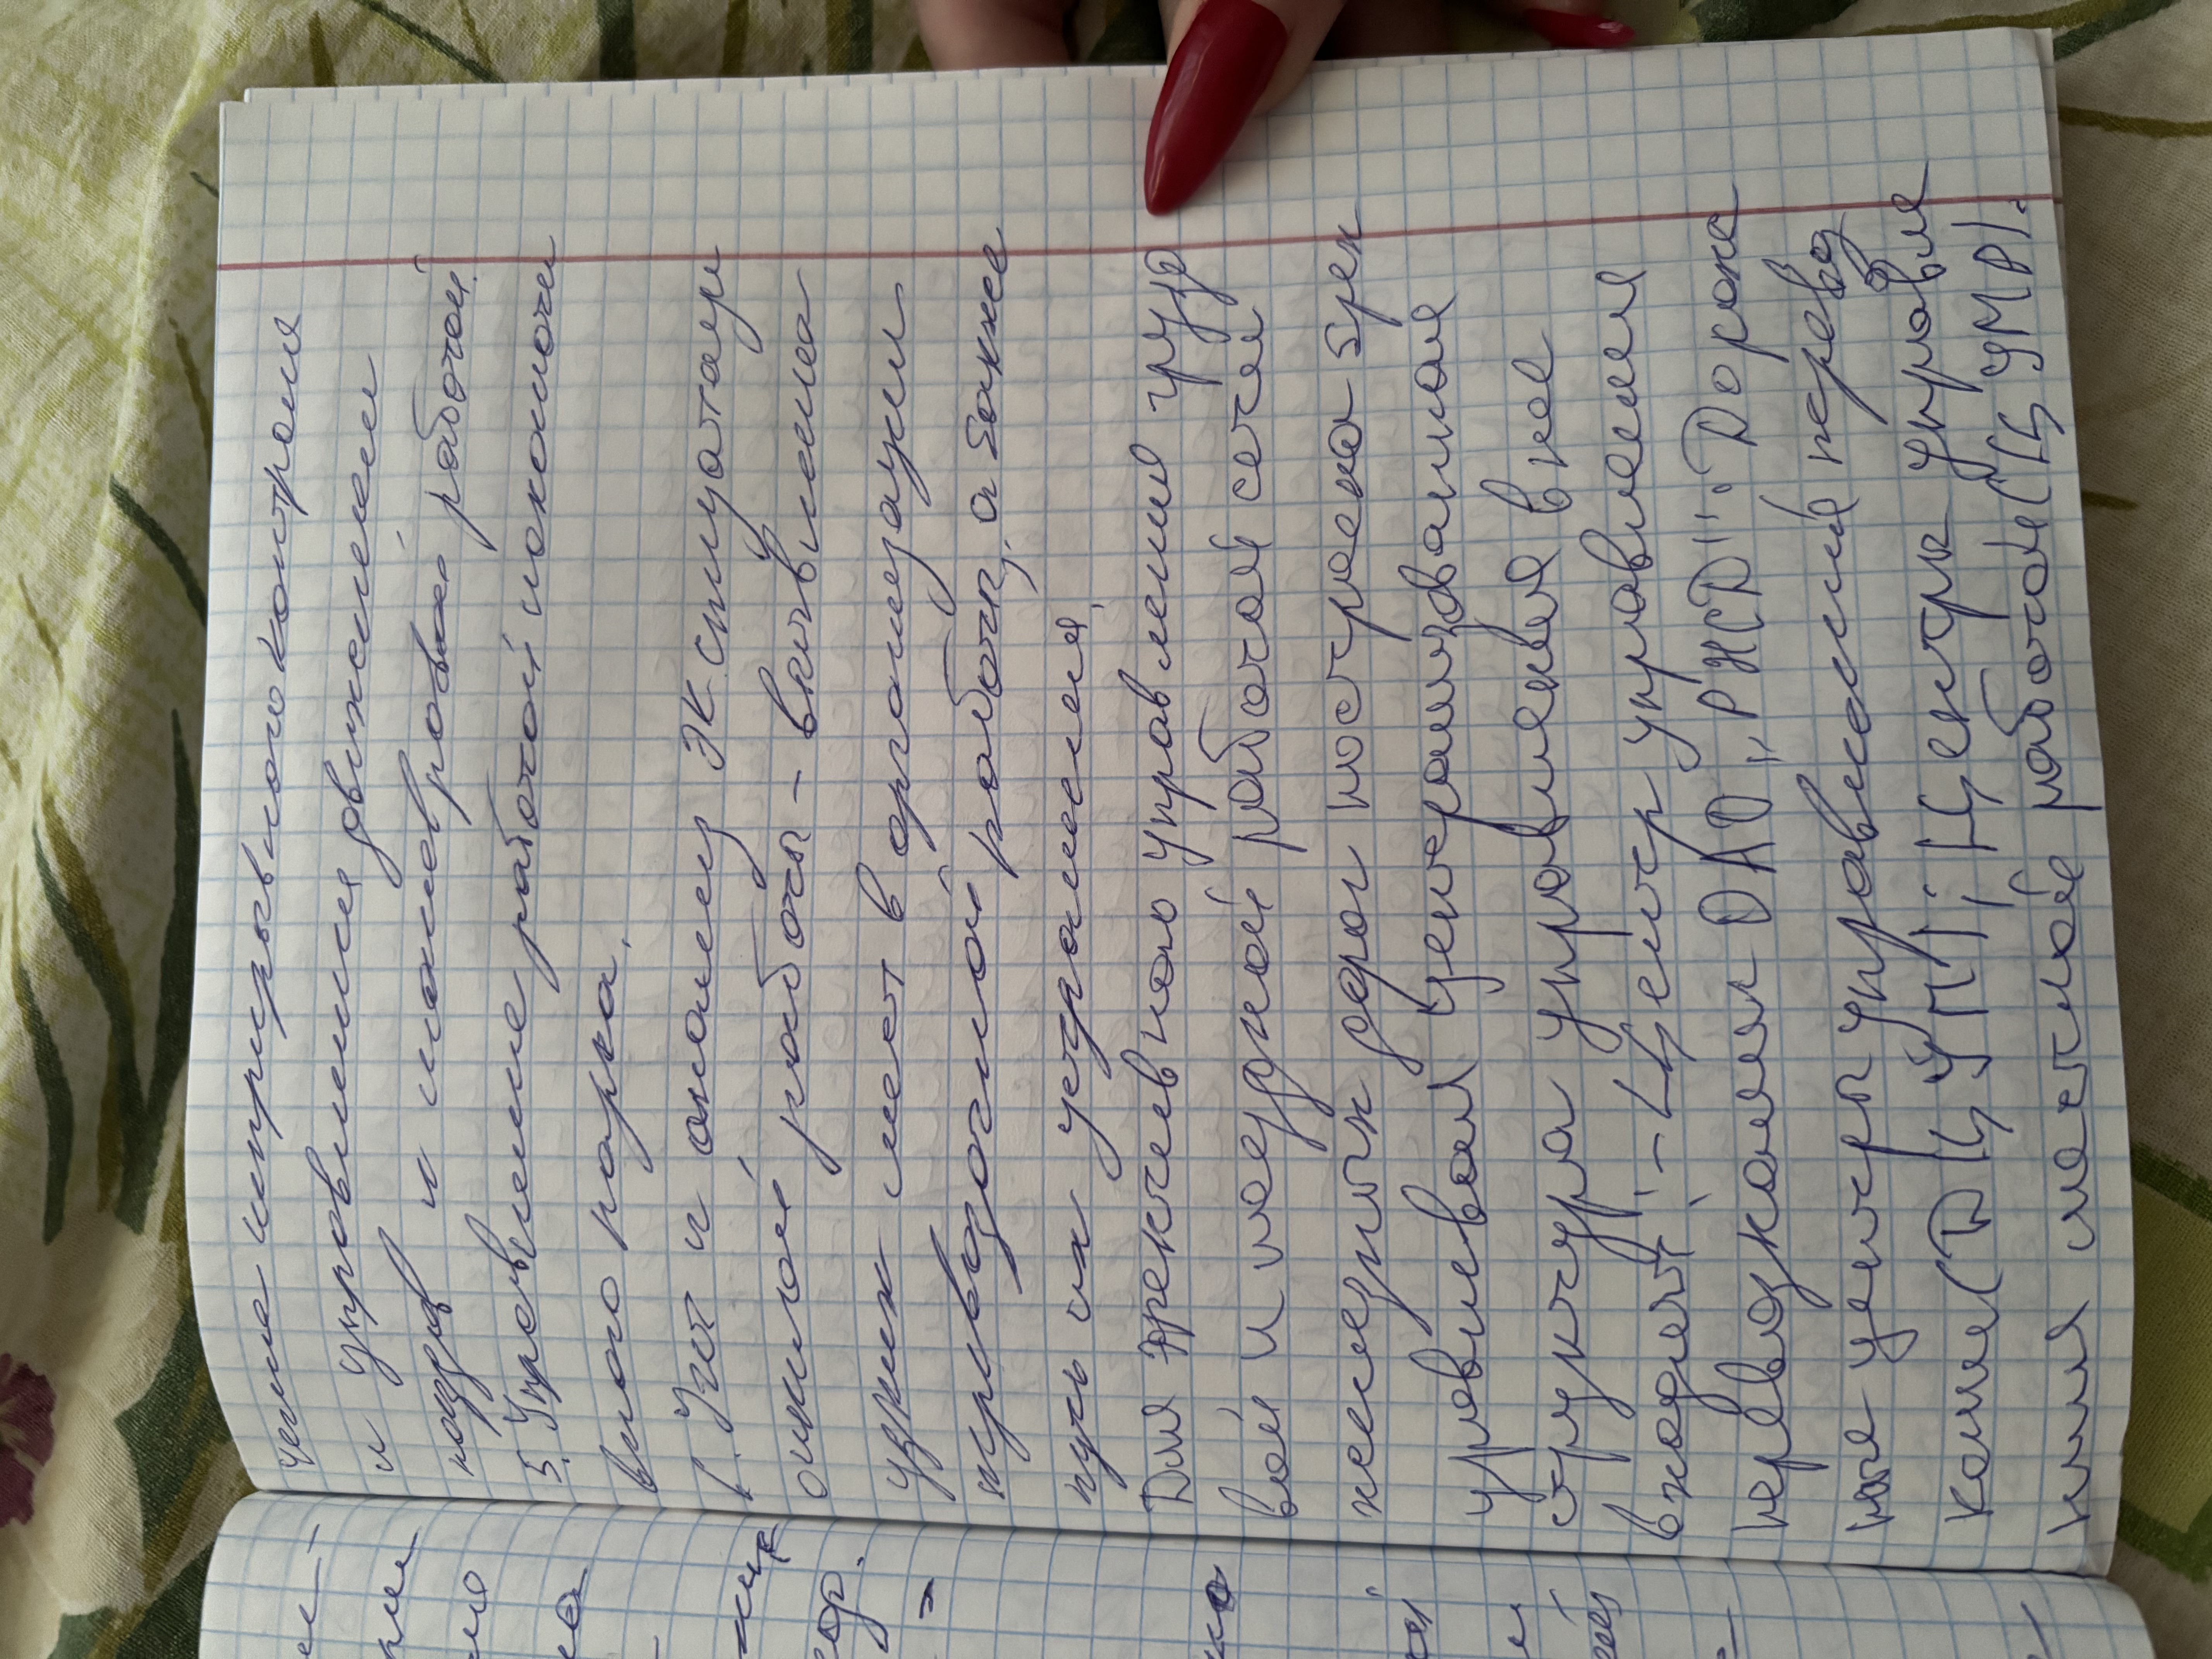 чение непрерывного контроля
и управления движением
поездов и маневровой работой.
5. Управление работой локомоти
вного парка.
6. Учёт и анализ эксплуатаци
онной работы - выявление
узких мест в организации
перевозочной работы, а также
путь их устранения.
Для эфективного управления грузо
вой и поездной работой сети
железных дорог построена трех
уровневая централизованная
структура управления в нее
входят: - Центр управления
перевозками ОАО "РЖД". Дорож
ные центры управлений перевоз
ками (ДЦУП); Центры управле
ния местной работой (ЦУМР).